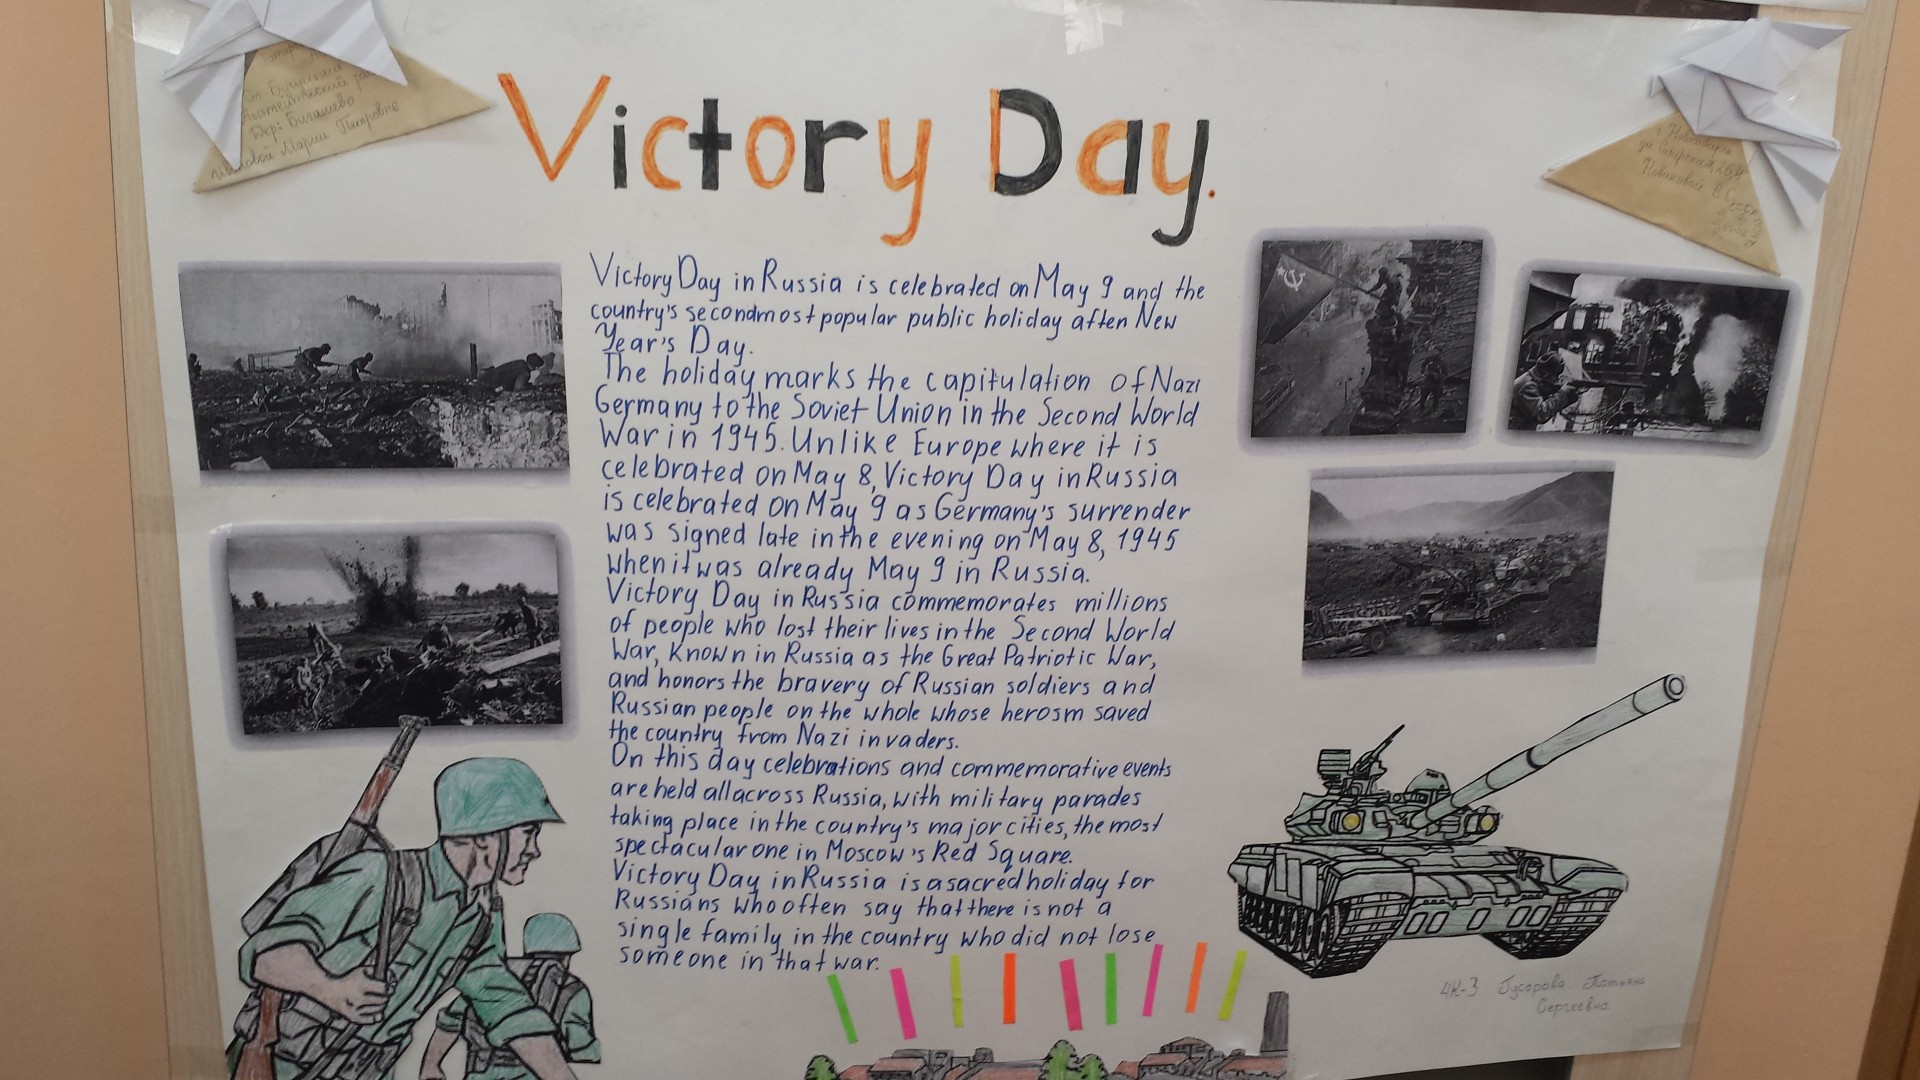 Victory Day.
ст Бугульма
Дер: Бигашево
Марии Петровне
г. Новосибирск
ул Сибирская, 26
Новиковой В С.
Victory Day in Russia is celebrated on May 9 and the
country's secondmost popular public holiday aften New
Year's Day.
The holiday marks the capitulation of Nazi
Germany to the Soviet Union in the Second World
War in 1945. Unlike Europe where it is
celebrated on May 8, Victory Day in Russia
is celebrated on May 9 as Germany's surrender
was signed late in the evening on May 8, 1945
when it was already May 9 in Russia.
Victory Day in Russia commemorates millions
of people who lost their lives in the Second World
War, known in Russia as the Great Patriotic War,
and honors the bravery of Russian soldiers and
Russian people on the whole whose herosm saved
the country from Nazi invaders.
On this day celebrations and commemorative events
are held all across Russia, with military parades
taking place in the country's major cities, the most
spectacular one in Moscow's Red Square.
Victory Day in Russia is a sacred holiday for
Russians who often say that there is not a
single family in the country who did not lose
someone in that war.
4К-3 Гусарова Татьяна
Сергеевна